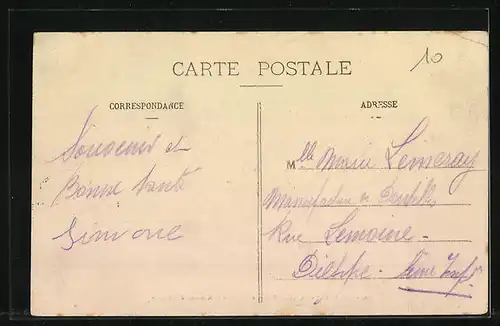 10
CARTE POSTALE
CORRESPONDANCE
Souvenir et
Bonne Santé
Simone
ADRESSE
Mlle Marie Lemeray
Manufacture de
Rue Lemoine -
Dieppe - Seine Infre